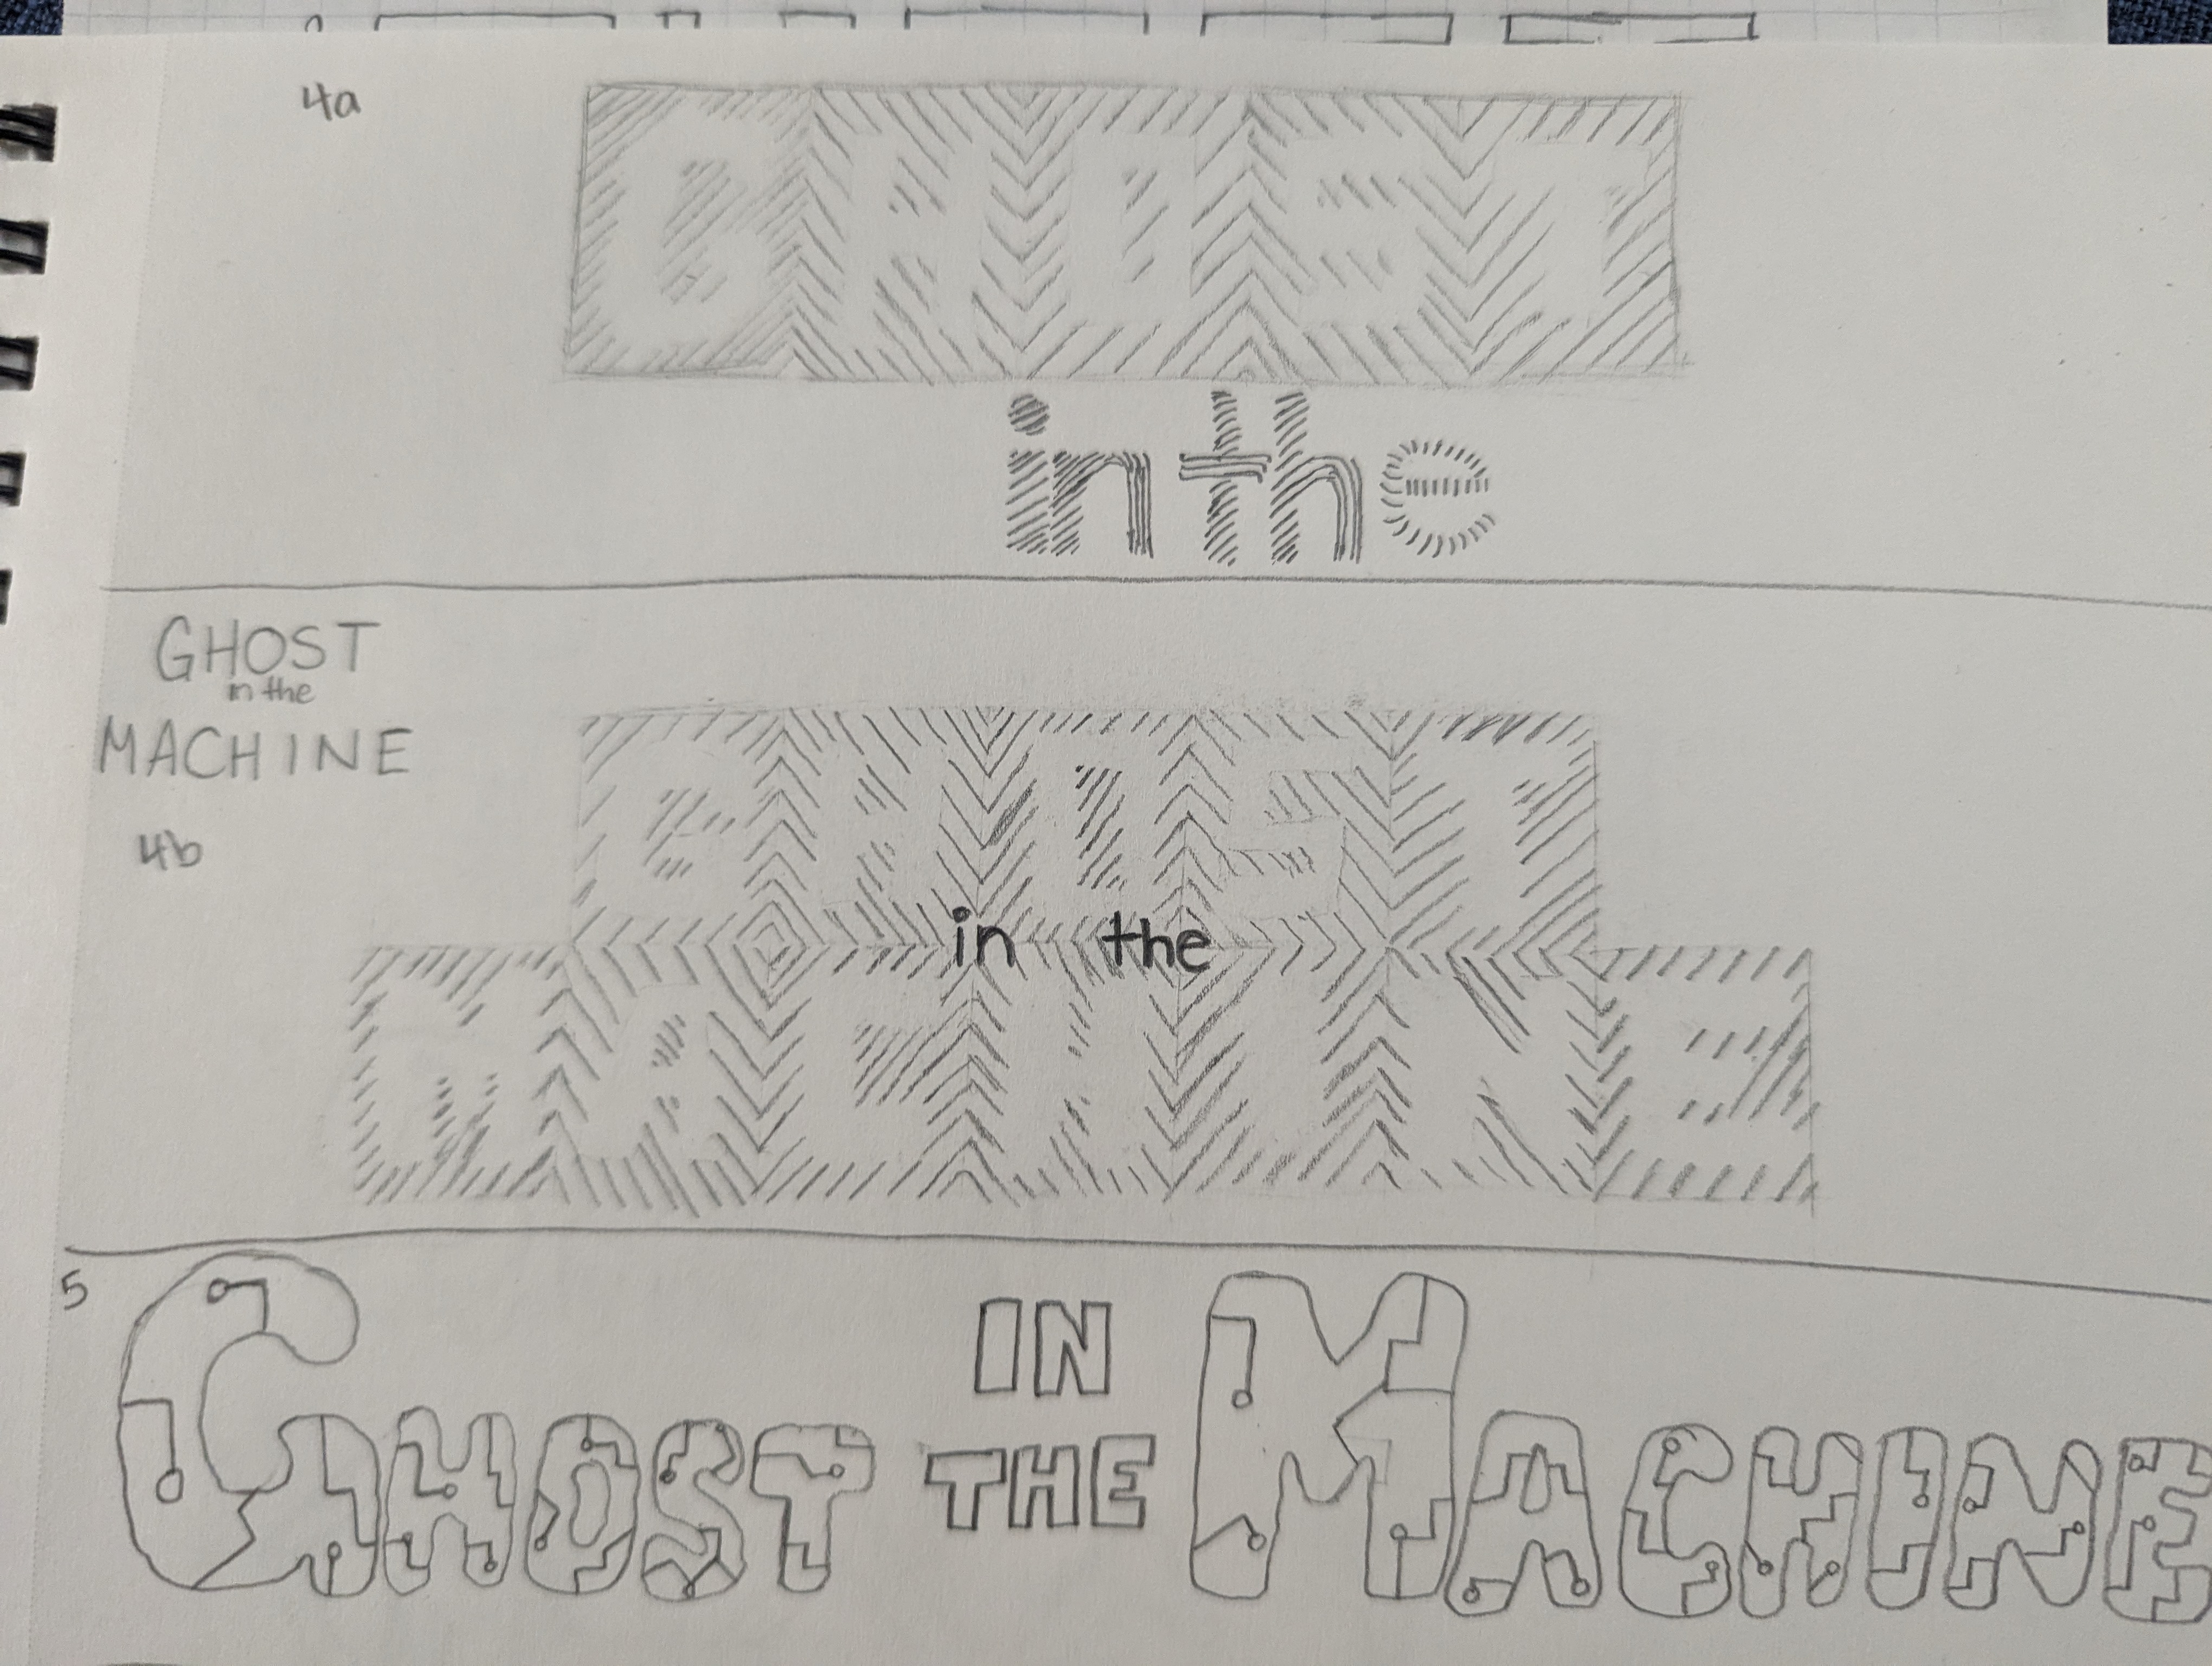 4a
GHOST
in the
GHOST
in the
MACHINE
4b
GHOST
in the
MACHINE
5
GHOST IN THE MACHINE